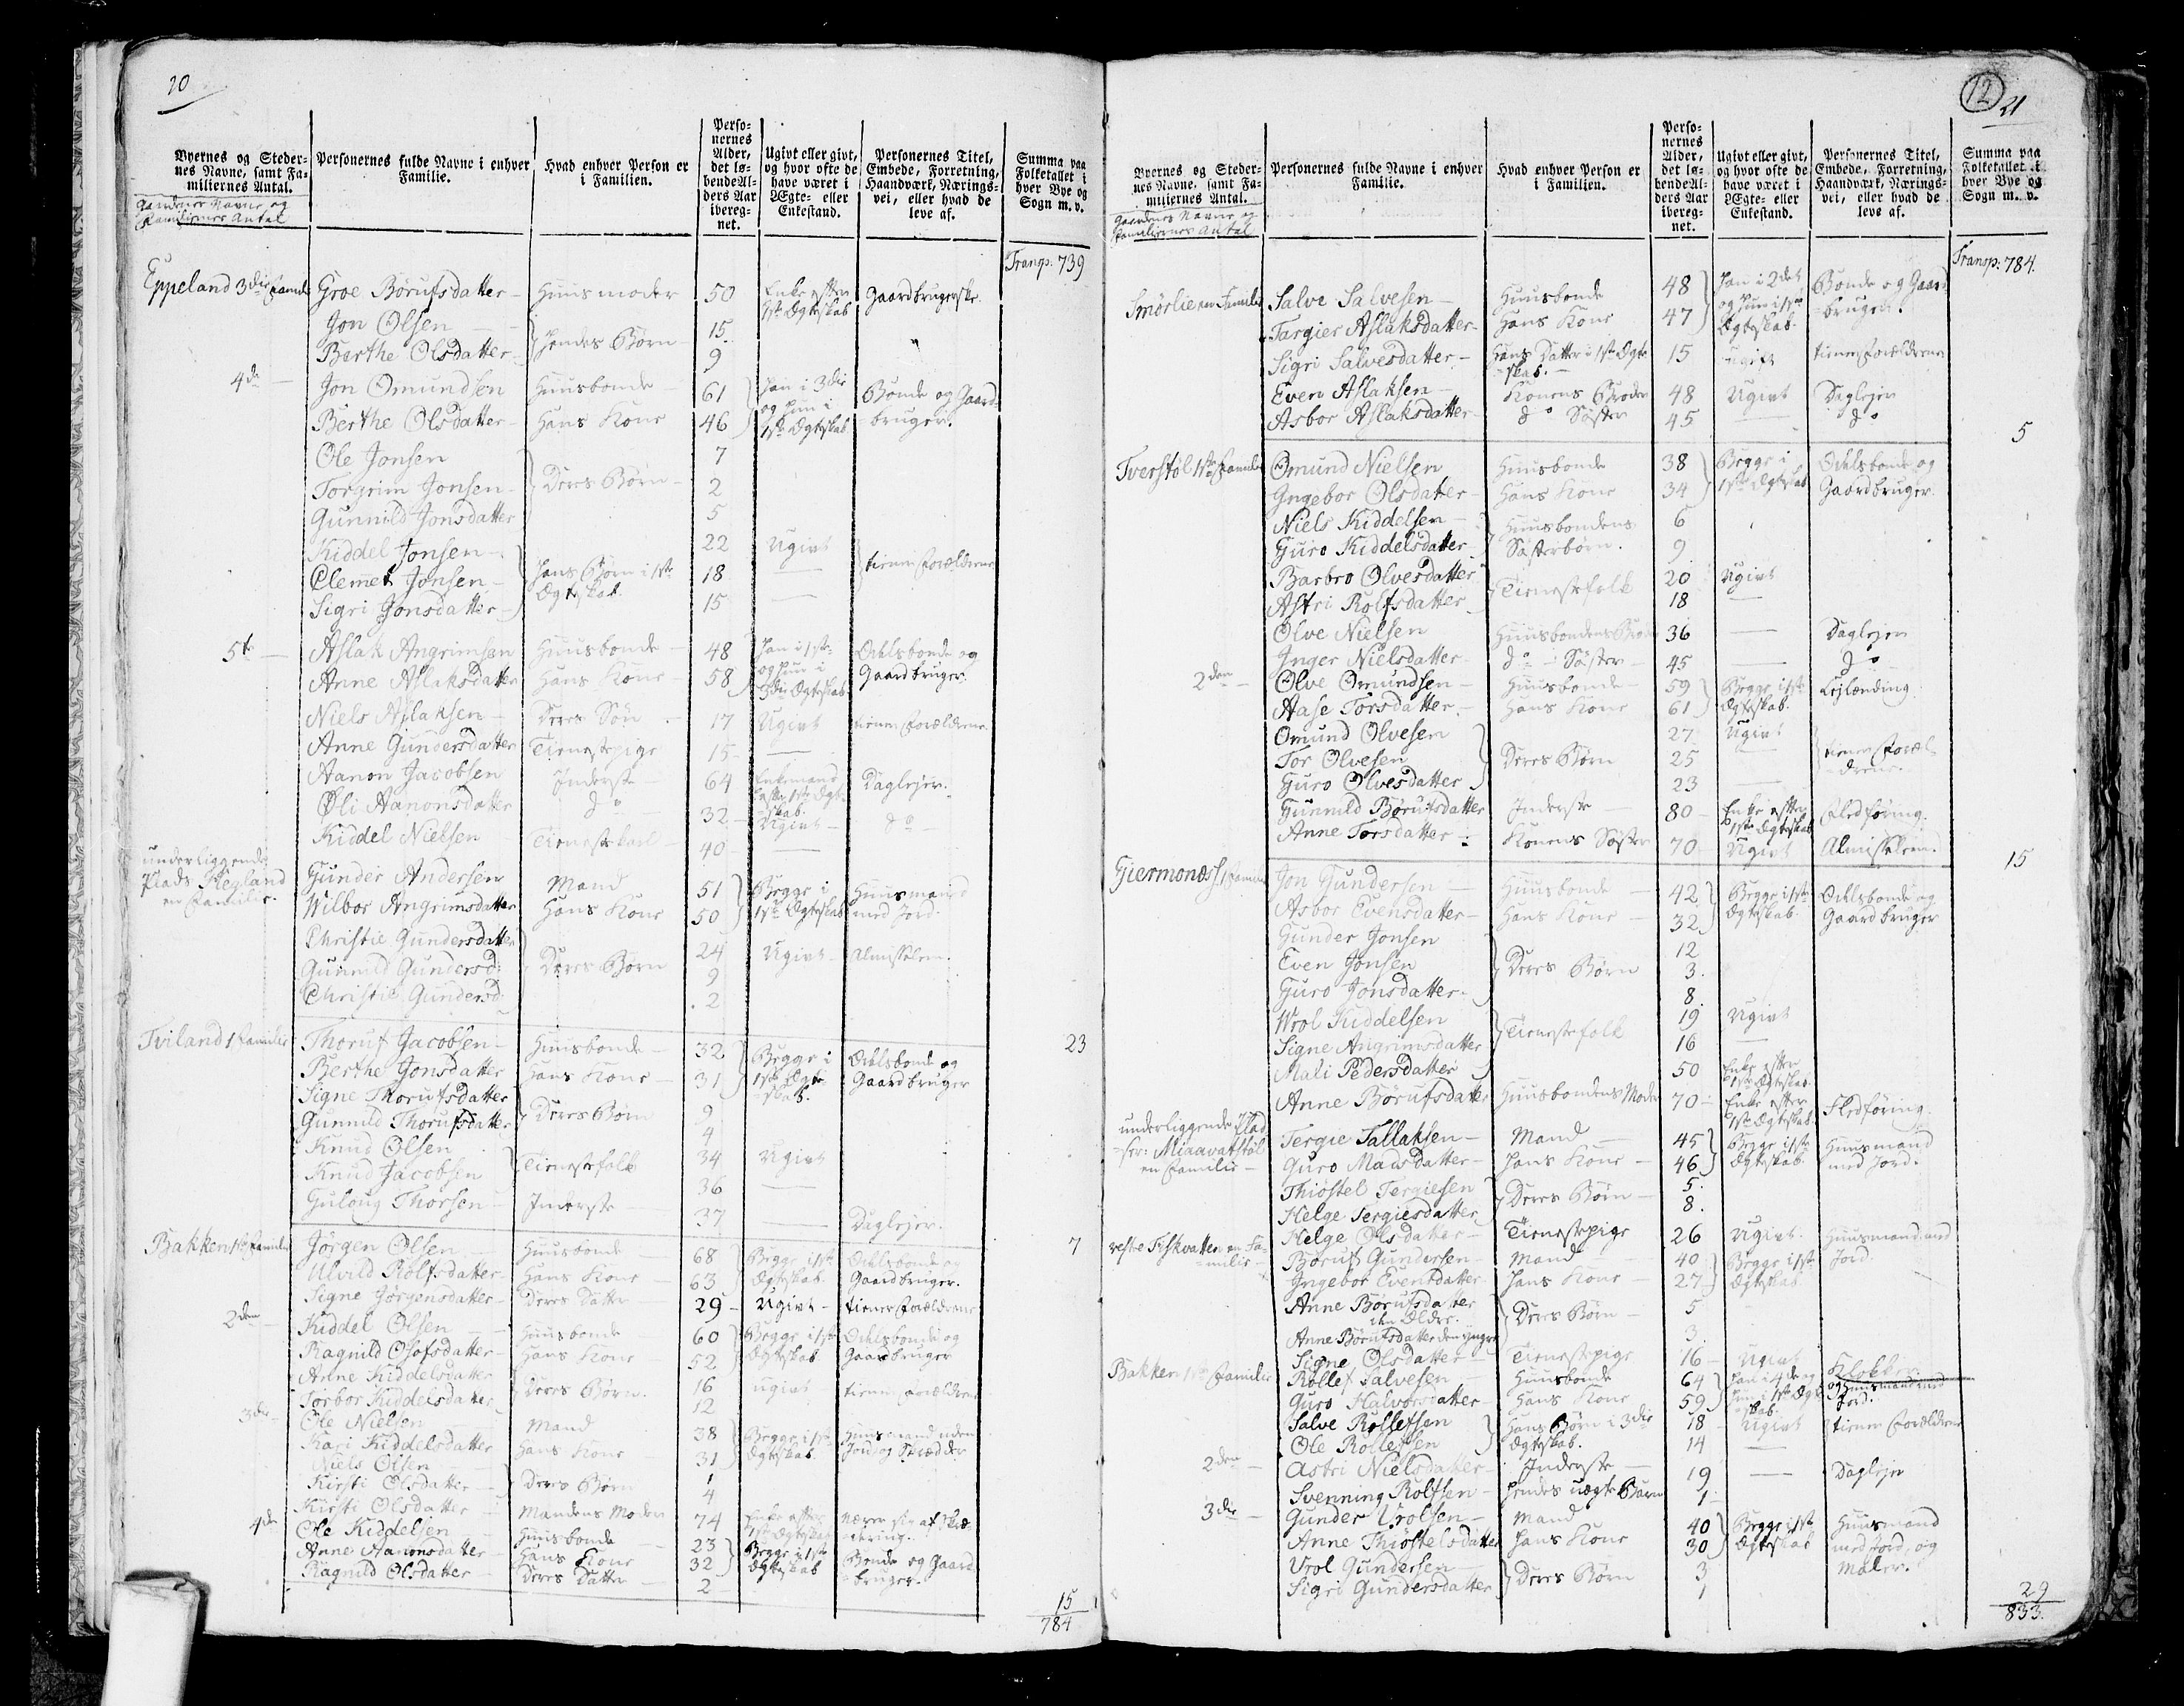 20
Byernes og Steder-
nes Navne, samt Fa-
miliernes Antal.
Gaardenes Navne og
Familiernes Antal
Personernes fulde Navne i enhver
Familie.
Hvad enhver Person er
i Familien.
Perso-
nernes
Alder,
det lø-
bende Al-
ders Aar
ibereg-
net.
Ugivt eller givt,
og hvor ofte de
have været i
Ægte- eller
Enkestand.
Personernes Titel,
Embede, Forretning,
Haandværk, Nærings-
vei, eller hvad de
leve af.
Summa paa
Folketallet i
hver Bye og
Sogn m. v.
Transp: 739
Eppeland 3die Famile Groe Børufsdatter - Huusmoder 50 Enke efter 1ste Ægteskab Gaardbrugerske
Jon Olsen 15
Berthe Olsdatter - Hendes Børn 9
4de - Jon Omundsen Huusbonde 61 Han i 3die og hun i 1ste Ægteskab Bonde og Gaardbruger.
Berthe Olsdatter - Hans Kone 46
Ole Jonsen 7
Torgrim Jonsen - Deres Børn - 2
Gunnild Jonsdatter 5
Kiddel Jonsen - 22 Ugivt tiener Forældrene
Clemet Jonsen - Hans Børn i 1ste Ægteskab. 18 -
Sigri Jonsdatter - 15 -
5te - Aslak Angrimsen Huusbonde - 48 Han i 1ste og hun i 3die Ægteskab Odelsbonde og Gaardbruger.
Anne Aslaksdatter Hans Kone - 58
Niels Aslaksen - Deres Søn 17 Ugivt tiener Forældrene
Anne Gundersdatter Tienestepige 15 -
Aanon Jacobsen Inderste 64 Enkemand efter 1ste Ægteskab. Daglejer.
Øli Aanonsdatter do 32 Ugivt - do -
Kiddel Nielsen Tienestekarl - 40 -
underliggende
Plads Flegland
en Familie.
Gunder Andersen Mand 51 Begge i 1ste Ægteskab Huusmand med Jord.
Wilbor Angrimsdatter Hans Kone 50
Christie Gundersdatter 24 Ugivt - Almisselem.
Gunnild Gundersd: Deres Børn 9
Christie Gundersd: 2
Tviland 1 Familie Thoruf Jacobsen - Huusbonde - 32 Begge i 1ste Ægteskab. Odelsbonde og Gaardbruger 23
Berthe Jonsdatter Hans Kone - 31
Signe Thorufsdatter Deres Børn 9
Gunnild Thorufsdatter 4
Knud Olsen Tienestefolk 34 Ugivt
Knud Jacobsen 36 -
Guloug Thorsen - Inderste 37 - Daglejer.
Bakken 1ste Familie Jørgen Olsen Huusbonde 68 Begge i 1ste Ægteskab. Odelsbonde og Gaardbruger. 7
Ulvild Rolfsdatter - Hans Kone - 63
Signe Jørgensdatter - Deres Datter 29 - Ugivt - tiener Forældrene
2den - Kiddel Olsen Huusbonde 60 Begge i 1ste Ægteskab Odelsbonde og Gaardbruger
Ragnild Olofsdatter - Hans Kone 52
Anne Kiddelsdatter Deres Børn. 16 ugivt tiener Forældrene
Torbor Kiddelsdatter 12
3die - Ole Nielsen Mand 38 Begge i 1ste Ægteskab. Huusmand uden Jord og Skrædder
Kari Kiddelsdatter Hans Kone 31
Niels Olsen Deres Børn 1
Kirsti Olsdatter 4
Kirsti Olsdatter Mandens Moder 74 Enke efter 1ste Ægteskab nærer sig af
4de Ole Kiddelsen Huusbonde 23 Begge i 1ste Ægteskab Bonde og Gaardbruger.
Anne Aanonsdatter Hans Kone 32
Ragnild Olsdatter Deres Datter 2
15
784
12
21
Byernes og Steder-
nes Navne, samt Fa-
miliernes Antal.
Gaardenes Navne og
Familiernes Antal
Personernes fulde Navne i enhver
Familie.
Hvad enhver Person er
i Familien.
Perso-
nernes
Alder,
det lø-
bende Al-
ders Aar
ibereg-
net.
Ugivt eller givt,
og hvor ofte de
have været i
Ægte- eller
Enkestand.
Personernes Titel,
Embede, Forretning,
Haandværk, Nærings-
vei, eller hvad de
leve af.
Summa paa
Folketallet i
hver Bye og
Sogn m. v.
Transp: 784.
Smørlie en Familie Salve Salvesen - Huusbonde 48 Han i 2det og hun i 1ste Ægteskab. Bonde og Gaardbruger.
Targier Aslaksdatter - Hans Kone 47
Sigri Salvesdatter - Hans Datter i 1ste Ægteskab. - 15 ugift tiener Forældrene
Even Aslaksen - Konens Broder 48 Ugivt Daglejer
Asbor Aslaksdatter - do Søster 45 - do
5
Tverstøl 1ste Familie Omund Nielsen Huusbonde 38 Begge i 1ste Ægteskab Odelsbonde og Gaardbruger.
Ingebor Olsdatter - Hans Kone 34
Niels Kiddelsen - Huusbondens Søsterbørn. 6
Guro Kiddelsdatter 9
Barbro Olvesdatter Tienestefolk 20 Ugivt
Astri Rolfsdatter 18 -
Olve Nielsen Huusbondens Broder 36 - Daglejer
Inger Nielsdatter do - Søster - 45 - do
2den - Olve Omundsen - Huusbonde - 59 Begge i 1ste Ægteskab. Lejlænding.
Aase Torsdatter - Hans Kone 61
Omund Olvesen 27 Ugivt
Tor Olvesen Deres Børn 25 - tiener Forældrene.
Guro Olvesdatter 23 -
Gunnild Børufsdatter Inderste 80 - Enke efter 1ste Ægteskab Fledføring.
Anne Torsdatter - Konens Søster 70 Ugivt Almisselem.
15
Giermonæs 1 Familie Jon Gundersen - Huusbonde 42 Begge i 1ste Ægteskab. Odelsbonde og Gaardbruger
Asbor Evensdatter - Hans Kone 32
Gunder Jonsen 12
Even Jonsen Deres Børn 3.
Guro Jonsdatter - 8
Wrol Kiddelsen Tienestefolk 19 Ugivt
Signe Angrimsdatter 16 -
Mali Pedersdatter 50 Enke efter 1ste Ægteskab
Anne Børufsdatter Huusbondens Moder 70 - Enke efter 1ste Ægteskab. Fledføring.
underliggende Plad-
ser: Miaavatstøl
en Familie -
Tergie Tallaksen - Mand 45 Begge i 1ste Ægteskab. Huusmand med Jord.
Guro Madsdatter - Hans Kone - 46
Thiøstel Tergiesen Deres Børn - 5.
Helge Tergiesdatter 8.
Helge Olsdatter - Tienestepige 26 Ugivt.
Fiskvatten en Familie - Børuf Gundersen - Mand 40 Begge i 1ste Ægteskab. Huusmand med Jord.
Ingebor Eventdatter Hans Kone - 27
Anne Børufsdatter den Ældre. Deres Børn - 5
Anne Børufsdatter den yngre 3
Signe Olsdatter - Tienestepige 16 - Ugivt
Bakken 1ste Familie Rollef Salvesen Huusbonde 64 Han i 4de og hun i 1ste Ægteskab. Klokker og Huusmand med Jord.
Guro Halvorsdatter - Hans Kone 59
Salve Rollefsen Hans Børn i 3die Ægteskab. 18 Ugivt tiener Forældrene
Ole Rollefsen 14 -
2den - Astri Nielsdatter - Inderste - 19 - Daglejer
Svenning Rolfsen - Hendes uægte Barn 1
3die - Gunder Vrolsen - Mand 40 Begge i 1ste Ægteskab Huusmand med Jord, og Maler.
Anne Thiøstelsdatter Hans Kone 30
Vrol Gundersen - Deres Børn 3
Sigri Gundersdatter 1
29
833.